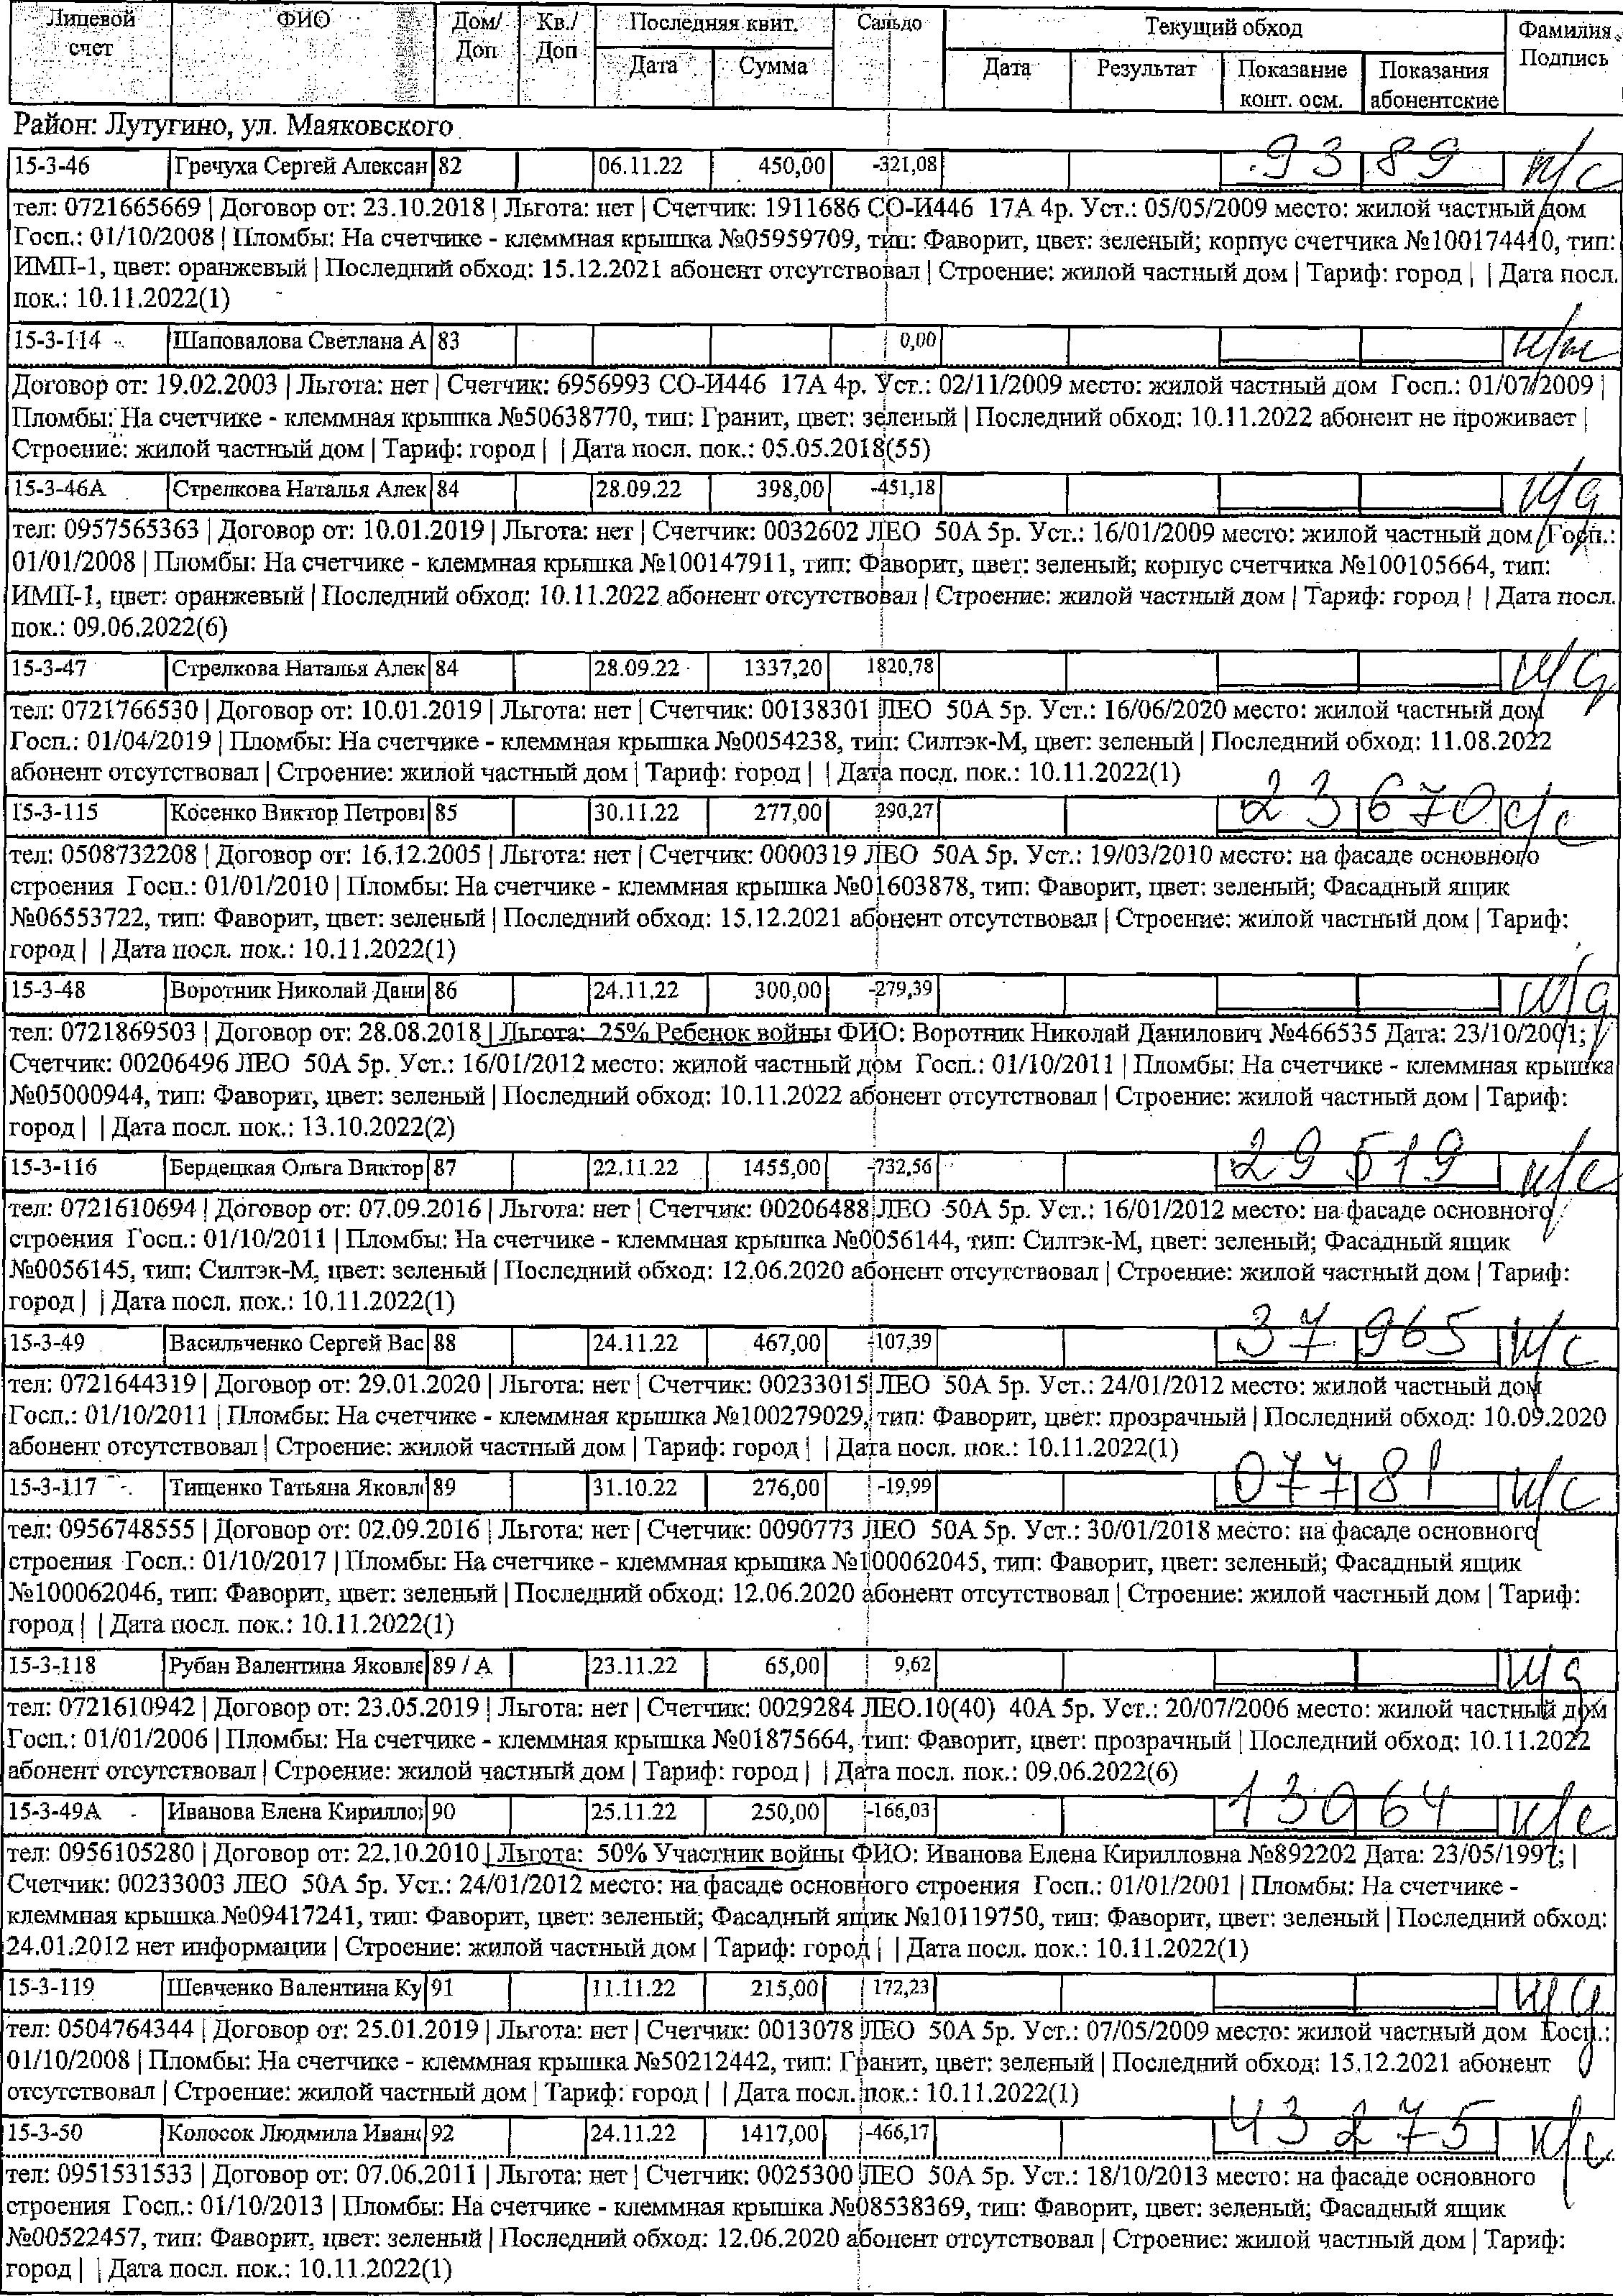 Лицевой счет ФИО Дом/Доп Кв./Доп Последняя квит. Сальдо Текущий обход Фамилия Подпись
Дата Сумма Дата Результат Показание конт. осм. Показания абонентские
Район: Лутугино, ул. Маяковского
15-3-46 Гречуха Сергей Алексан 82 06.11.22 450,00 -321,08 93 89
тел: 0721665669 | Договор от: 23.10.2018 | Льгота: нет | Счетчик: 1911686 СО-И446 17А 4р. Уст.: 05/05/2009 место: жилой частный дом
Госп.: 01/10/2008 | Пломбы: На счетчике - клеммная крышка №05959709, тип: Фаворит, цвет: зеленый; корпус счетчика №100174410, тип:
ИМП-1, цвет: оранжевый | Последний обход: 15.12.2021 абонент отсутствовал | Строение: жилой частный дом | Тариф: город | | Дата посл.
пок.: 10.11.2022(1)
15-3-114 Шаповалова Светлана А 83 0,00
Договор от: 19.02.2003 | Льгота: нет | Счетчик: 6956993 СО-И446 17А 4р. Уст.: 02/11/2009 место: жилой частный дом Госп.: 01/07/2009 |
Пломбы: На счетчике - клеммная крышка №50638770, тип: Гранит, цвет: зеленый | Последний обход: 10.11.2022 абонент не проживает |
Строение: жилой частный дом | Тариф: город | | Дата посл. пок.: 05.05.2018(55)
15-3-46А Стрелкова Наталья Алек 84 28.09.22 398,00 -451,18
тел: 0957565363 | Договор от: 10.01.2019 | Льгота: нет | Счетчик: 0032602 ЛЕО 50А 5р. Уст.: 16/01/2009 место: жилой частный дом Госп.:
01/01/2008 | Пломбы: На счетчике - клеммная крышка №100147911, тип: Фаворит, цвет: зеленый; корпус счетчика №100105664, тип:
ИМП-1, цвет: оранжевый | Последний обход: 10.11.2022 абонент отсутствовал | Строение: жилой частный дом | Тариф: город | | Дата посл.
пок.: 09.06.2022(6)
15-3-47 Стрелкова Наталья Алек 84 28.09.22 1337,20 1820,78
тел: 0721766530 | Договор от: 10.01.2019 | Льгота: нет | Счетчик: 00138301 ЛЕО 50А 5р. Уст.: 16/06/2020 место: жилой частный дом
Госп.: 01/04/2019 | Пломбы: На счетчике - клеммная крышка №0054238, тип: Силтэк-М, цвет: зеленый | Последний обход: 11.08.2022
абонент отсутствовал | Строение: жилой частный дом | Тариф: город | | Дата посл. пок.: 10.11.2022(1)
15-3-115 Косенко Виктор Петрови 85 30.11.22 277,00 290,27 23 670
тел: 0508732208 | Договор от: 16.12.2005 | Льгота: нет | Счетчик: 0000319 ЛЕО 50А 5р. Уст.: 19/03/2010 место: на фасаде основного
строения Госп.: 01/01/2010 | Пломбы: На счетчике - клеммная крышка №01603878, тип: Фаворит, цвет: зеленый; Фасадный ящик
№06553722, тип: Фаворит, цвет: зеленый | Последний обход: 15.12.2021 абонент отсутствовал | Строение: жилой частный дом | Тариф:
город | | Дата посл. пок.: 10.11.2022(1)
15-3-48 Воротник Николай Дани 86 24.11.22 300,00 -279,39
тел: 0721869503 | Договор от: 28.08.2018 | Льгота: 25% Ребенок войны ФИО: Воротник Николай Данилович №466535 Дата: 23/10/2001; |
Счетчик: 00206496 ЛЕО 50А 5р. Уст.: 16/01/2012 место: жилой частный дом Госп.: 01/10/2011 | Пломбы: На счетчике - клеммная крышка
№05000944, тип: Фаворит, цвет: зеленый | Последний обход: 10.11.2022 абонент отсутствовал | Строение: жилой частный дом | Тариф:
город | | Дата посл. пок.: 13.10.2022(2)
15-3-116 Бердецкая Ольга Виктор 87 22.11.22 1455,00 -732,56 29 519
тел: 0721610694 | Договор от: 07.09.2016 | Льгота: нет | Счетчик: 00206488 ЛЕО 50А 5р. Уст.: 16/01/2012 место: на фасаде основного
строения Госп.: 01/10/2011 | Пломбы: На счетчике - клеммная крышка №0056144, тип: Силтэк-М, цвет: зеленый; Фасадный ящик
№0056145, тип: Силтэк-М, цвет: зеленый | Последний обход: 12.06.2020 абонент отсутствовал | Строение: жилой частный дом | Тариф:
город | | Дата посл. пок.: 10.11.2022(1)
15-3-49 Васильченко Сергей Вас 88 24.11.22 467,00 -107,39 37 965
тел: 0721644319 | Договор от: 29.01.2020 | Льгота: нет | Счетчик: 00233015 ЛЕО 50А 5р. Уст.: 24/01/2012 место: жилой частный дом
Госп.: 01/10/2011 | Пломбы: На счетчике - клеммная крышка №100279029, тип: Фаворит, цвет: прозрачный | Последний обход: 10.09.2020
абонент отсутствовал | Строение: жилой частный дом | Тариф: город | | Дата посл. пок.: 10.11.2022(1)
15-3-117 Тищенко Татьяна Яковл 89 31.10.22 276,00 -19,99 077 81
тел: 0956748555 | Договор от: 02.09.2016 | Льгота: нет | Счетчик: 0090773 ЛЕО 50А 5р. Уст.: 30/01/2018 место: на фасаде основного
строения Госп.: 01/10/2017 | Пломбы: На счетчике - клеммная крышка №100062045, тип: Фаворит, цвет: зеленый; Фасадный ящик
№100062046, тип: Фаворит, цвет: зеленый | Последний обход: 12.06.2020 абонент отсутствовал | Строение: жилой частный дом | Тариф:
город | | Дата посл. пок.: 10.11.2022(1)
15-3-118 Рубан Валентина Яковле 89 / А 23.11.22 65,00 9,62
тел: 0721610942 | Договор от: 23.05.2019 | Льгота: нет | Счетчик: 0029284 ЛЕО.10(40) 40А 5р. Уст.: 20/07/2006 место: жилой частный дом
Госп.: 01/01/2006 | Пломбы: На счетчике - клеммная крышка №01875664, тип: Фаворит, цвет: прозрачный | Последний обход: 10.11.2022
абонент отсутствовал | Строение: жилой частный дом | Тариф: город | | Дата посл. пок.: 09.06.2022(6)
15-3-49А Иванова Елена Кирилло 90 25.11.22 250,00 -166,03 130 64
тел: 0956105280 | Договор от: 22.10.2010 | Льгота: 50% Участник войны ФИО: Иванова Елена Кирилловна №892202 Дата: 23/05/1997; |
Счетчик: 00233003 ЛЕО 50А 5р. Уст.: 24/01/2012 место: на фасаде основного строения Госп.: 01/01/2001 | Пломбы: На счетчике -
клеммная крышка №09417241, тип: Фаворит, цвет: зеленый; Фасадный ящик №10119750, тип: Фаворит, цвет: зеленый | Последний обход:
24.01.2012 нет информации | Строение: жилой частный дом | Тариф: город | | Дата посл. пок.: 10.11.2022(1)
15-3-119 Шевченко Валентина Ку 91 11.11.22 215,00 172,23
тел: 0504764344 | Договор от: 25.01.2019 | Льгота: нет | Счетчик: 0013078 ЛЕО 50А 5р. Уст.: 07/05/2009 место: жилой частный дом Госп.:
01/10/2008 | Пломбы: На счетчике - клеммная крышка №50212442, тип: Гранит, цвет: зеленый | Последний обход: 15.12.2021 абонент
отсутствовал | Строение: жилой частный дом | Тариф: город | | Дата посл. пок.: 10.11.2022(1)
15-3-50 Колосок Людмила Иван 92 24.11.22 1417,00 -466,17 43 275
тел: 0951531533 | Договор от: 07.06.2011 | Льгота: нет | Счетчик: 0025300 ЛЕО 50А 5р. Уст.: 18/10/2013 место: на фасаде основного
строения Госп.: 01/10/2013 | Пломбы: На счетчике - клеммная крышка №08538369, тип: Фаворит, цвет: зеленый; Фасадный ящик
№00522457, тип: Фаворит, цвет: зеленый | Последний обход: 12.06.2020 абонент отсутствовал | Строение: жилой частный дом | Тариф:
город | | Дата посл. пок.: 10.11.2022(1)